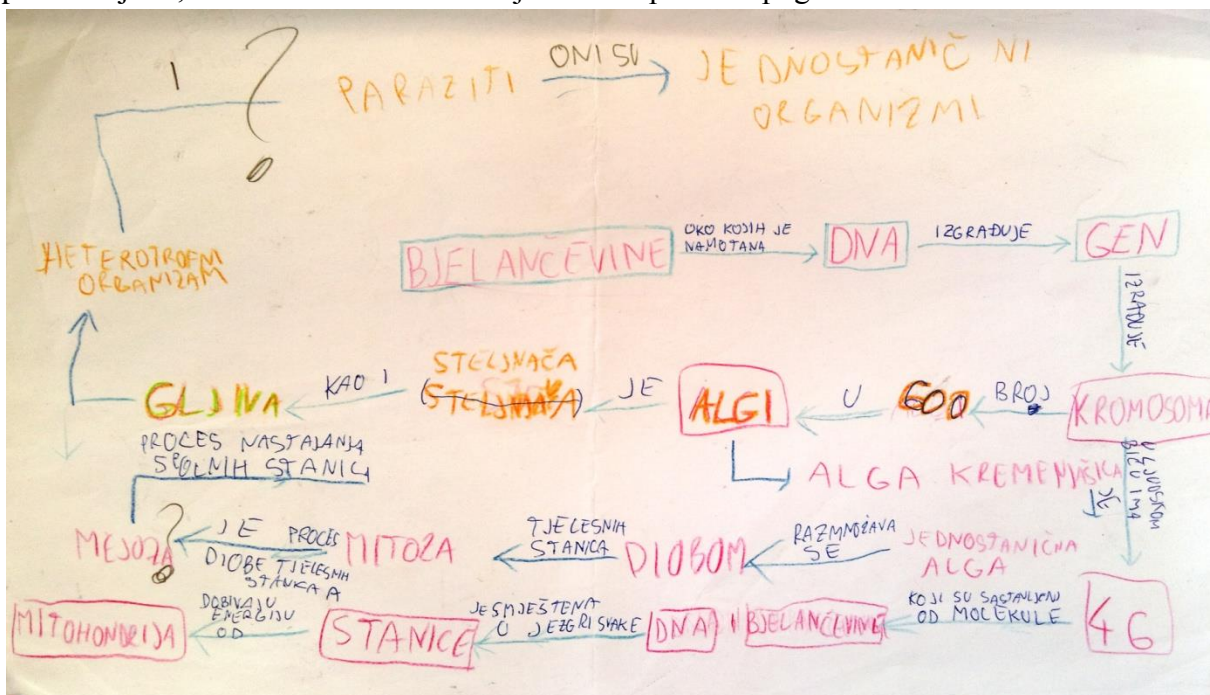 I
?
PARAZITI
ONI SU
JEDNOSTANIČNI
ORGANIZMI
HETEROTROFNI
ORGANIZAM
BJELANČEVINE
OKO KOJIH JE
NAMOTANA
DNA
IZGRAĐUJE
GEN
IZGRAĐUJE
GLJIVA
KAO I
STELJNAČA
JE
ALGI
U
600
BROJ
KROMOSOMA
PROCES NASTAJANJA
SPOLNIH STANICA
ALGA KREMENJAŠICA
JE
U LJUDSKOM
BIĆU IMA
MEJOZA
?
JE PROCES
DIOBE TJELESNIH
MITOZA
TJELESNIH
STANICA
DIOBOM
RAZMNOŽAVA
SE
JEDNOSTANIČNA
ALGA
MITOHONDRIJA
DOBIVAJU
ENERGIJU
OD
STANICE
JE SMJEŠTENA
U JEZGRI SVAKE
DNA I BJELANČEVINE
KOJI SU SASTAVLJENI
OD MOLEKULE
46